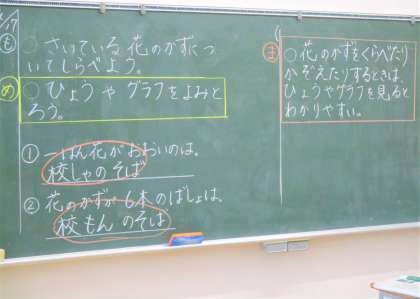 6/7
も ○さいている花のかずについてしらべよう。
め ○ひょうやグラフをよみとろう。
① 一ばん花がおおいのは、
校しゃのそば
② 花のかずが6本のばしょは、
校もんのそば
ま ○花のかずをくらべたり
かぞえたりするときは、
ひょうやグラフを見ると
わかりやすい。